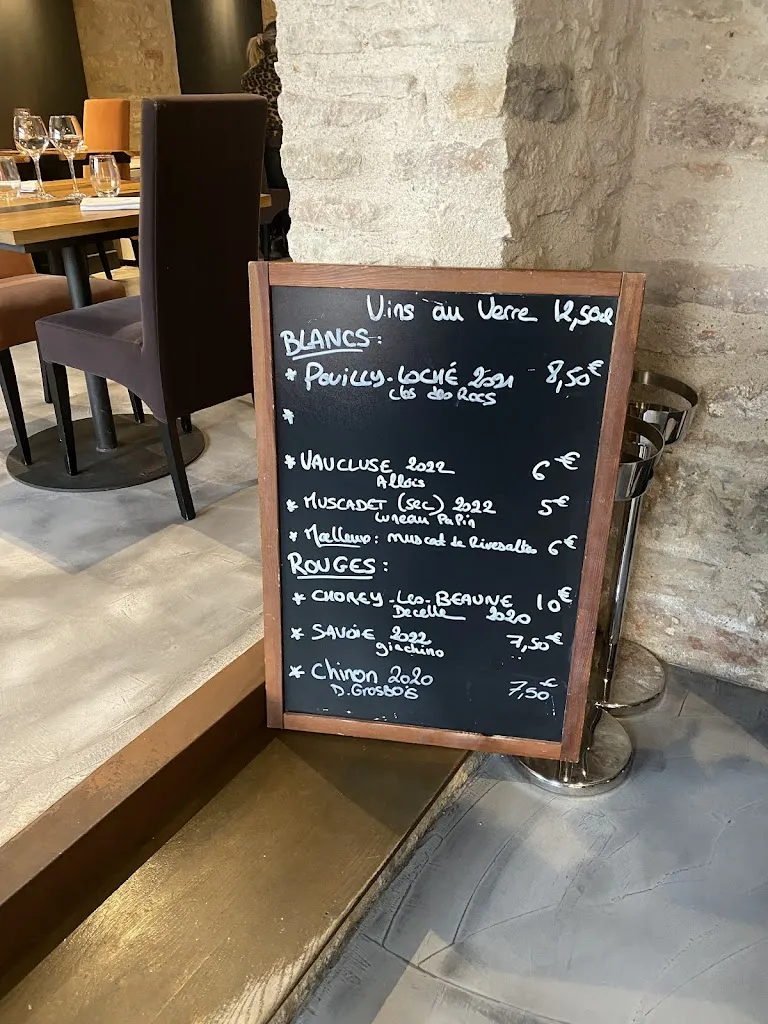 Vins au Verre 12,50cl
BLANCS :
* POUILLY-LOCHÉ 2021 8,50€
Clos des Rocs
*
* VAUCLUSE 2022 6€
Allois
* MUSCADET (sec) 2022 5€
Luneau Papin
* Moelleux : muscat de Rivesaltes 6€
ROUGES :
* CHOREY-Les-BEAUNE 10€
Decelle 2020
* SAVOIE 2022 7,50€
giachino
* Chinon 2020 7,50€
D. GROSBOIS